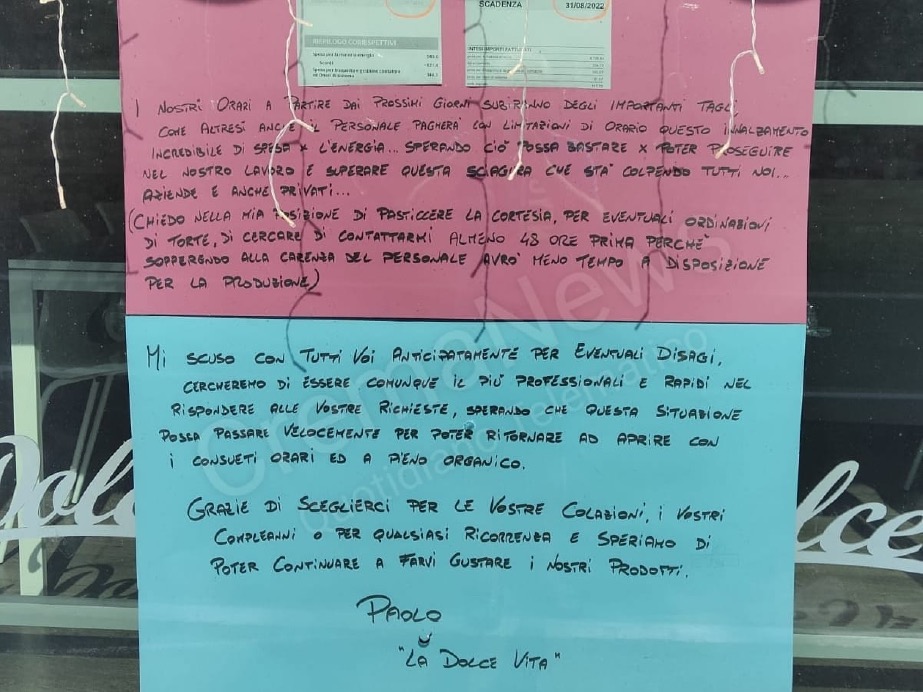 SCADENZA 31/08/2022
RIEPILOGO CORRISPETTIVI
I NOSTRI ORARI A PARTIRE DAI PROSSIMI GIORNI SUBIRANNO DEGLI IMPORTANTI TAGLI
COME ALTRESÌ ANCHE IL PERSONALE PAGHERÀ CON LIMITAZIONI DI ORARIO QUESTO INNALZAMENTO
INCREDIBILE DI SPESA X L'ENERGIA... SPERANDO CIÒ POSSA BASTARE X POTER PROSEGUIRE
NEL NOSTRO LAVORO E SUPERARE QUESTA SCIAGURA CHE STÀ COLPENDO TUTTI NOI...
AZIENDE E ANCHE PRIVATI...
(CHIEDO NELLA MIA POSIZIONE DI PASTICCERE LA CORTESIA, PER EVENTUALI ORDINAZIONI
DI TORTE, DI CERCARE DI CONTATTARMI ALMENO 48 ORE PRIMA PERCHÈ
SOPPERENDO ALLA CARENZA DEL PERSONALE AVRÒ MENO TEMPO A DISPOSIZIONE
PER LA PRODUZIONE)
MI SCUSO CON TUTTI VOI ANTICIPATAMENTE PER EVENTUALI DISAGI,
CERCHEREMO DI ESSERE COMUNQUE IL PIÙ PROFESSIONALI E RAPIDI NEL
RISPONDERE ALLE VOSTRE RICHIESTE, SPERANDO CHE QUESTA SITUAZIONE
POSSA PASSARE VELOCEMENTE PER POTER RITORNARE AD APRIRE CON
I CONSUETI ORARI ED A PIENO ORGANICO.
GRAZIE DI SCEGLIERCI PER LE VOSTRE COLAZIONI, I VOSTRI
COMPLEANNI O PER QUALSIASI RICORRENZA E SPERIAMO DI
POTER CONTINUARE A FARVI GUSTARE I NOSTRI PRODOTTI.
PAOLO
"LA DOLCE VITA"
CremaNews
Quotidiano Telematico